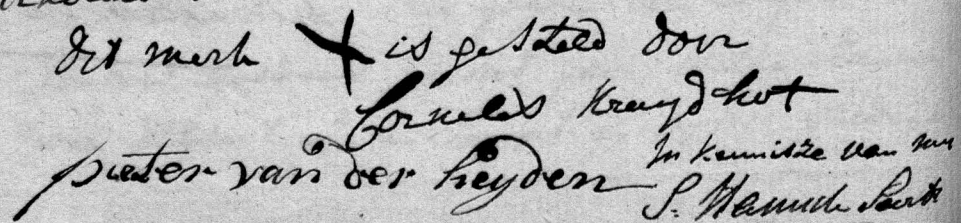 dit merk X is gesteld door
Cornelis Kruydhof
pieter van der heyden
In kennisze van my
S.